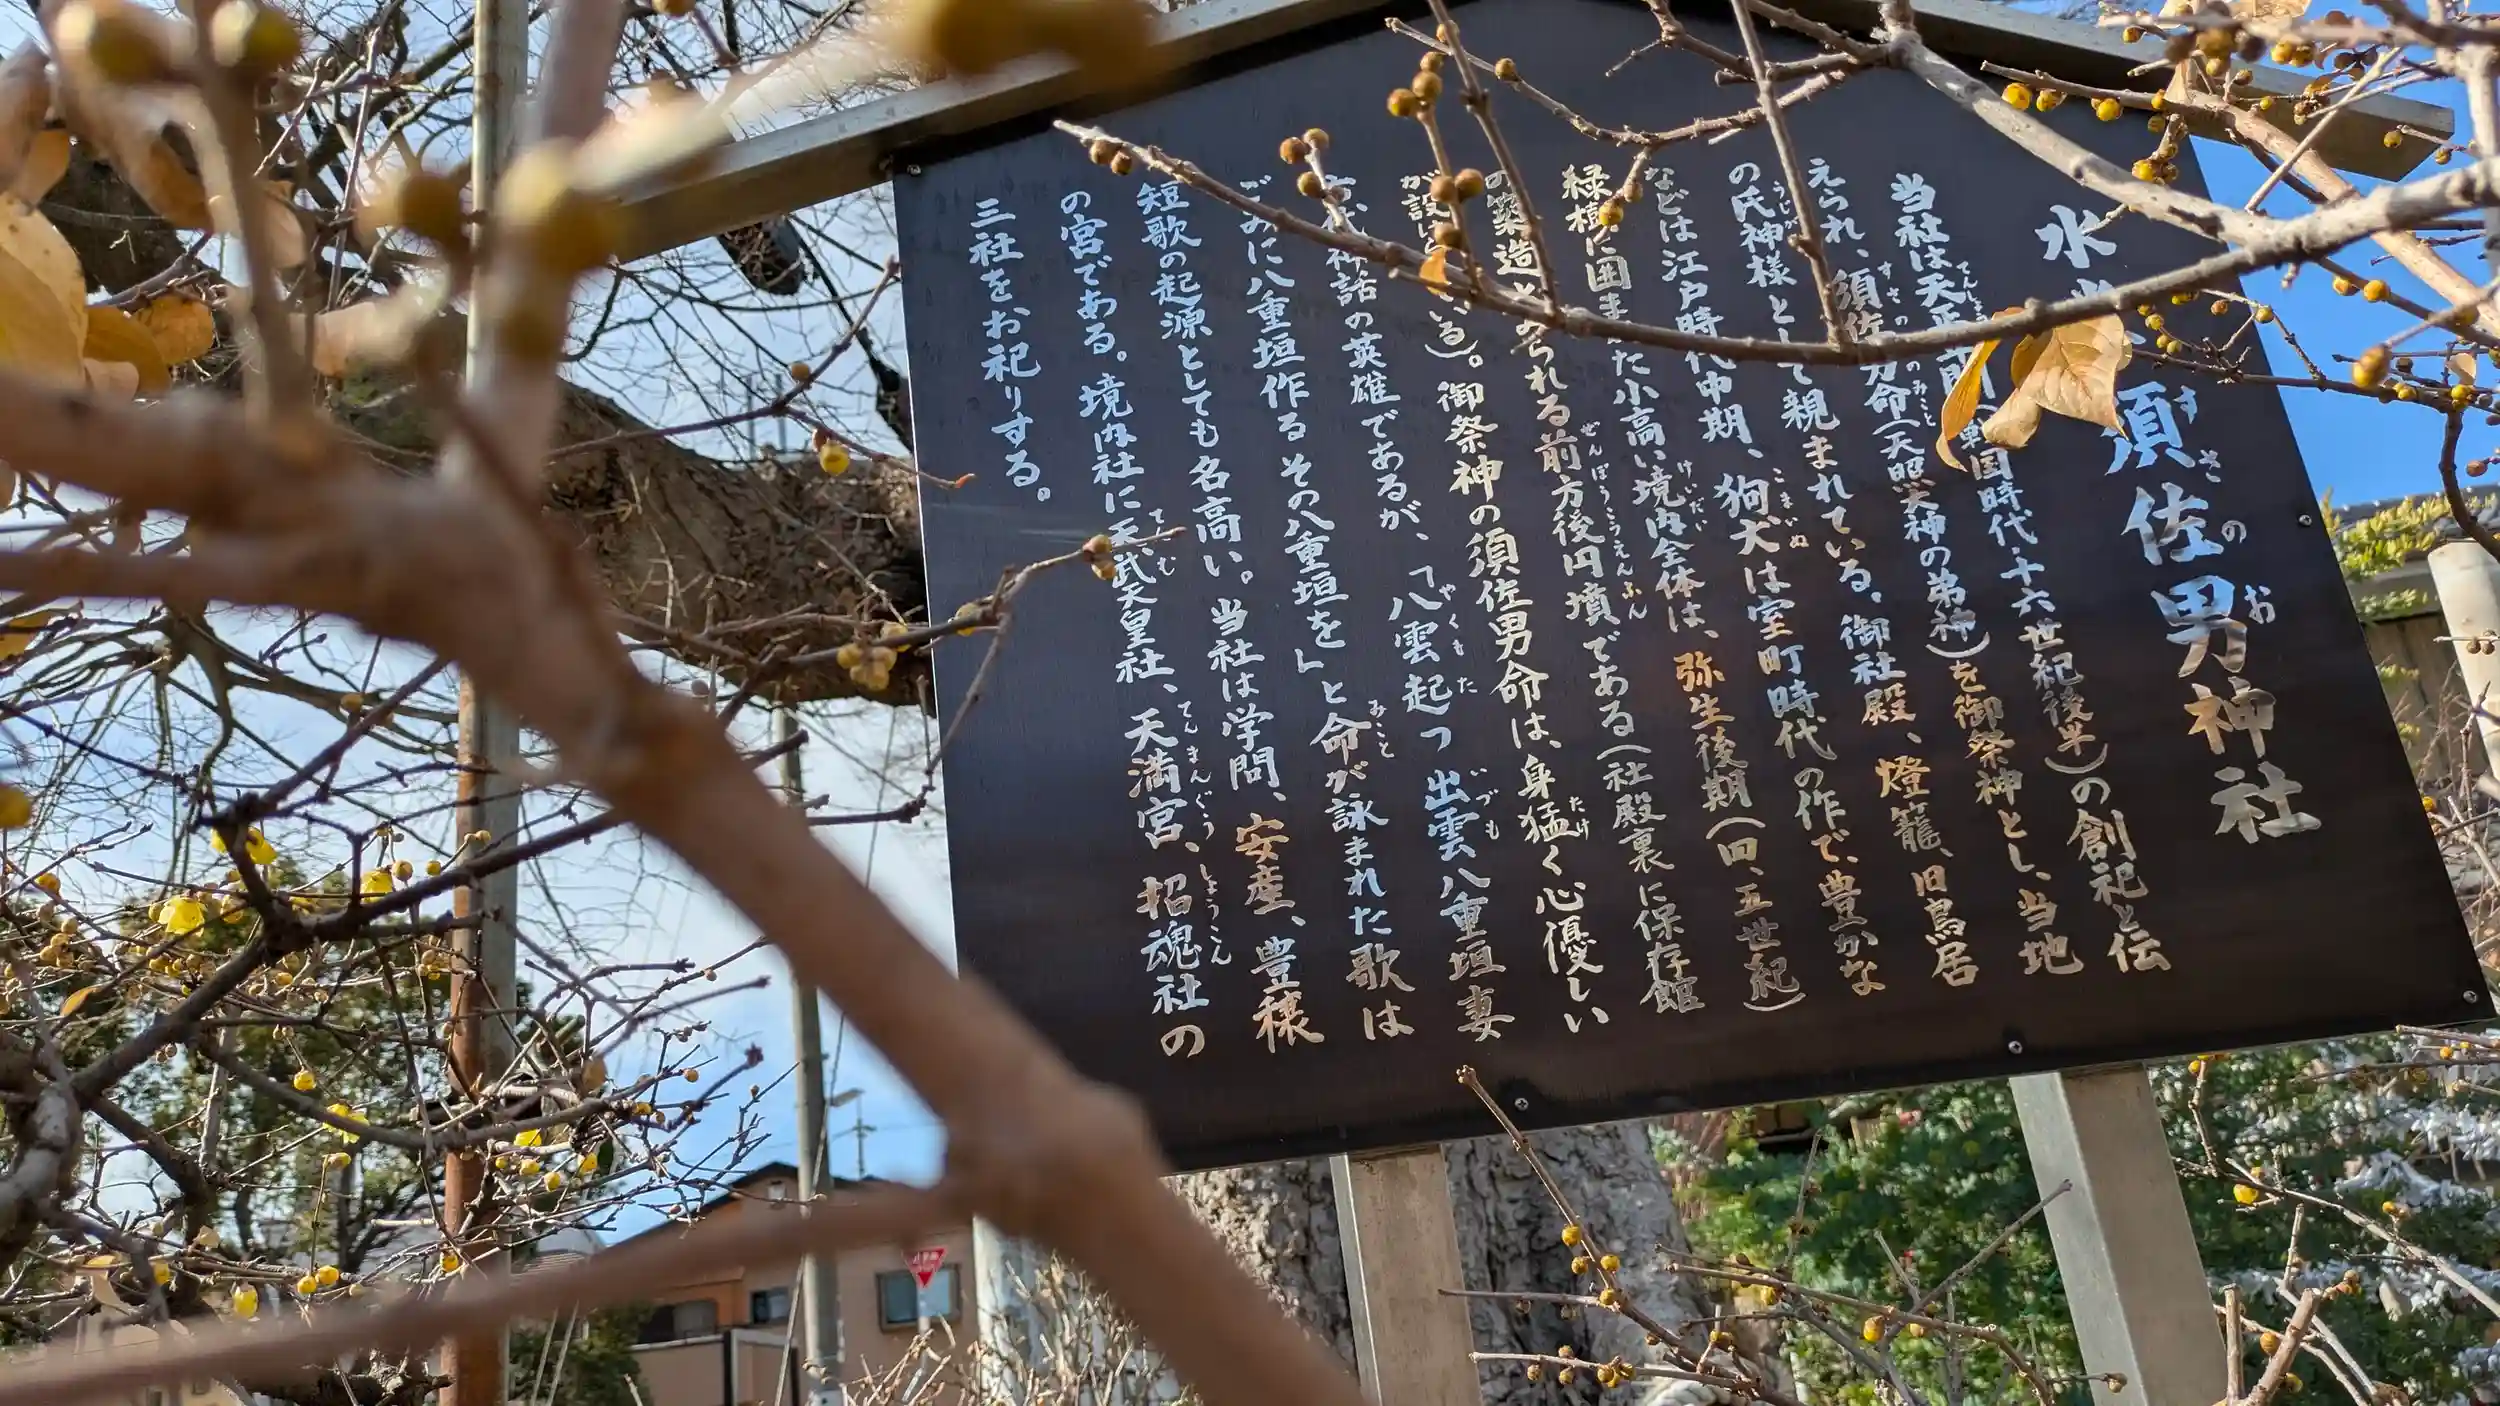 水 須佐男神社
すさのお
当社は天正年間(戦国時代・十六世紀後半)の創祀と伝
えられ、須佐男命(天照大神の弟神)を御祭神とし、当地
の氏神様として親まれている。御社殿、燈籠、旧鳥居
などは江戸時代中期、狗犬は室町時代の作で、豊かな
緑樹に囲まれた小高い境内全体は、弥生後期(四、五世紀)
の築造とみられる前方後円墳である(社殿裏に保存館
が設けられている)。御祭神の須佐男命は、身猛く心優しい
古代神話の英雄であるが、「八雲起つ 出雲八重垣妻
ごみに八重垣作るその八重垣を」と命が詠まれた歌は
短歌の起源としても名高い。当社は学問、安産、豊穣
の宮である。境内社に天武天皇社、天満宮、招魂社の
三社をお祀りする。